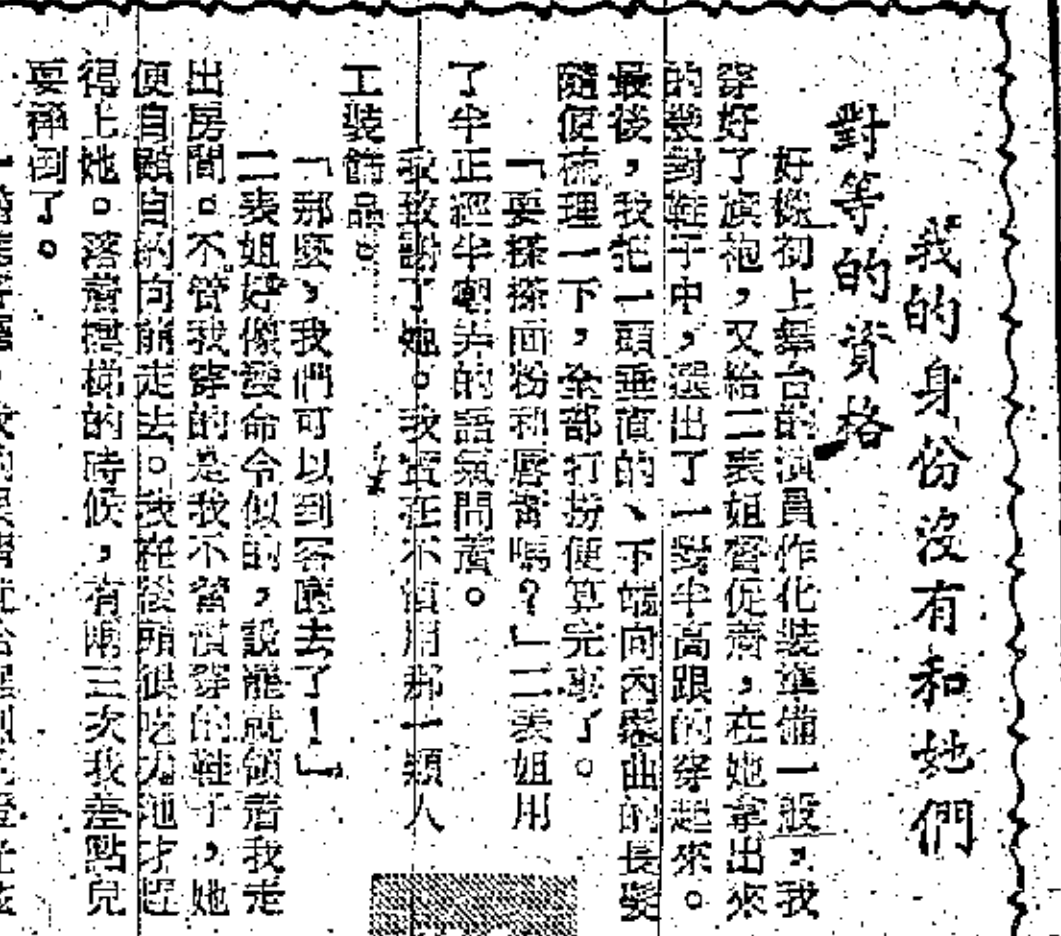 我的身份沒有和她們
對等的資格
好像初上舞台的演員作化裝準備一般，我
穿好了旗袍，又給二表姐督促着，在她拿出來
的幾對鞋子中，選出了一對半高跟的穿起來。
最後，我把一頭垂直的、下端向內捲曲的長髮
隨便梳理一下，全部打扮便算完事了。
「要搽搽面粉和唇膏嗎？」二表姐用
了半正經半嘲弄的語氣問着。
我致謝了她。我實在不慣用那一類人
工裝飾品。
「那麼，我們可以到客廳去了！」
二表姐好像發命令似的，說罷就領着我走
出房間。不管我穿的是我不習慣穿的鞋子，她
便自顧自的向前走去。我在後頭很吃力地才趕
得上她。落着樓梯的時候，有兩三次我差點兒
要摔倒了。